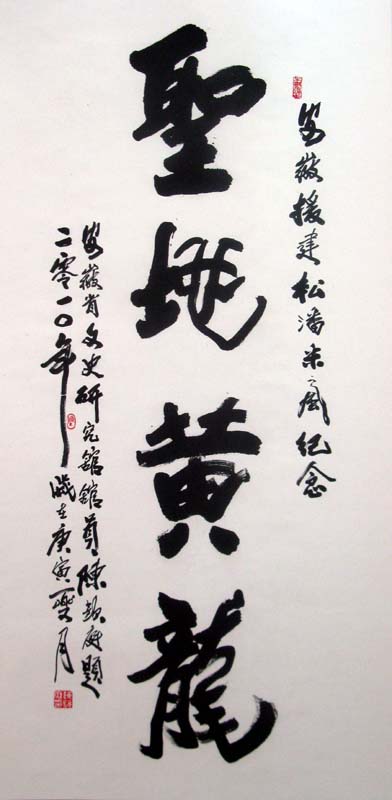 安徽援建松潘采風紀念
聖地黄龍
安徽省文史研究館館員陳庭題
二零一〇年歲在庚寅月